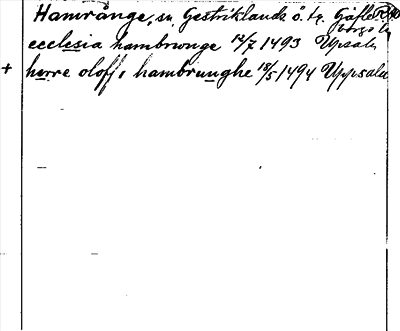 Hamrånge, sn, Gestriklands ö. tg. Gäfleborgs län
ecclesia hambrwnge 12/7 1493 Upsala
+ herre oloff i hambrunghe 18/5 1494 Uppsala